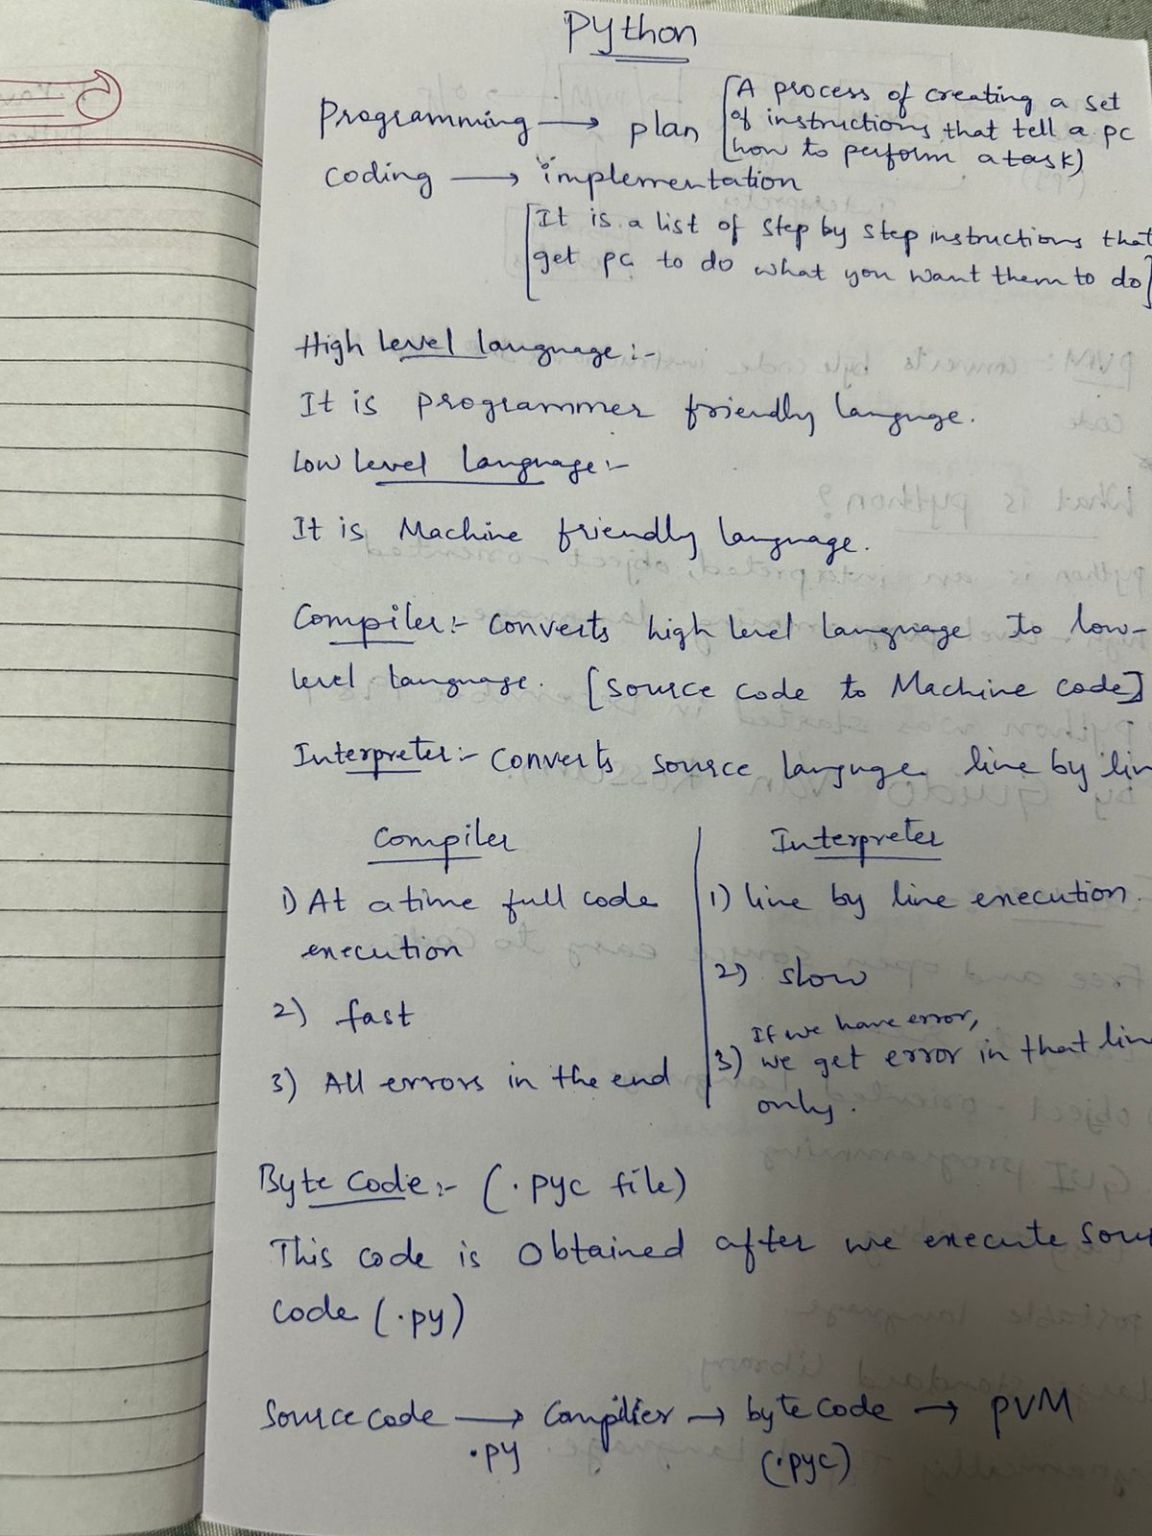 Python
Programming → plan [A process of creating a set
of instructions that tell a pc
how to perform a task)
coding → implementation
[It is a list of step by step instructions that
get pc to do what you want them to do]
High level language :-
It is programmer friendly languge.
Low level language :-
It is Machine friendly language.
Compiler :- Converts high level language to low-
level language. [source code to Machine code]
Interpreter :- Converts source languge line by lin
Compiler
Interpreter
1) At a time full code
execution
1) line by line execution.
2) fast
2) slow
3) All errors in the end
If we have error,
3) we get error in that lin
only.
Byte Code :- (.pyc file)
This code is Obtained after we execute Sour
Code (.py)
Source code → Compilier → byte code → PVM
.py
(.pyc)